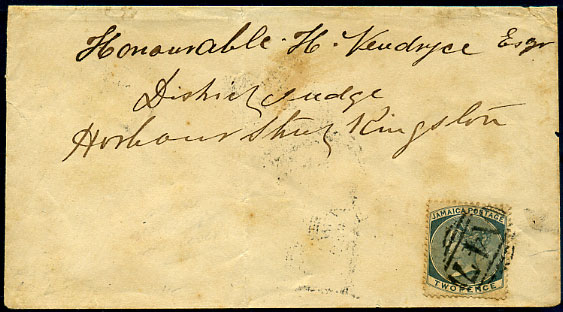 Honourable. H. Vendryce Esqr
District Judge
Harbour Street Kingston
JAMAICA POSTAGE
TWO PENCE